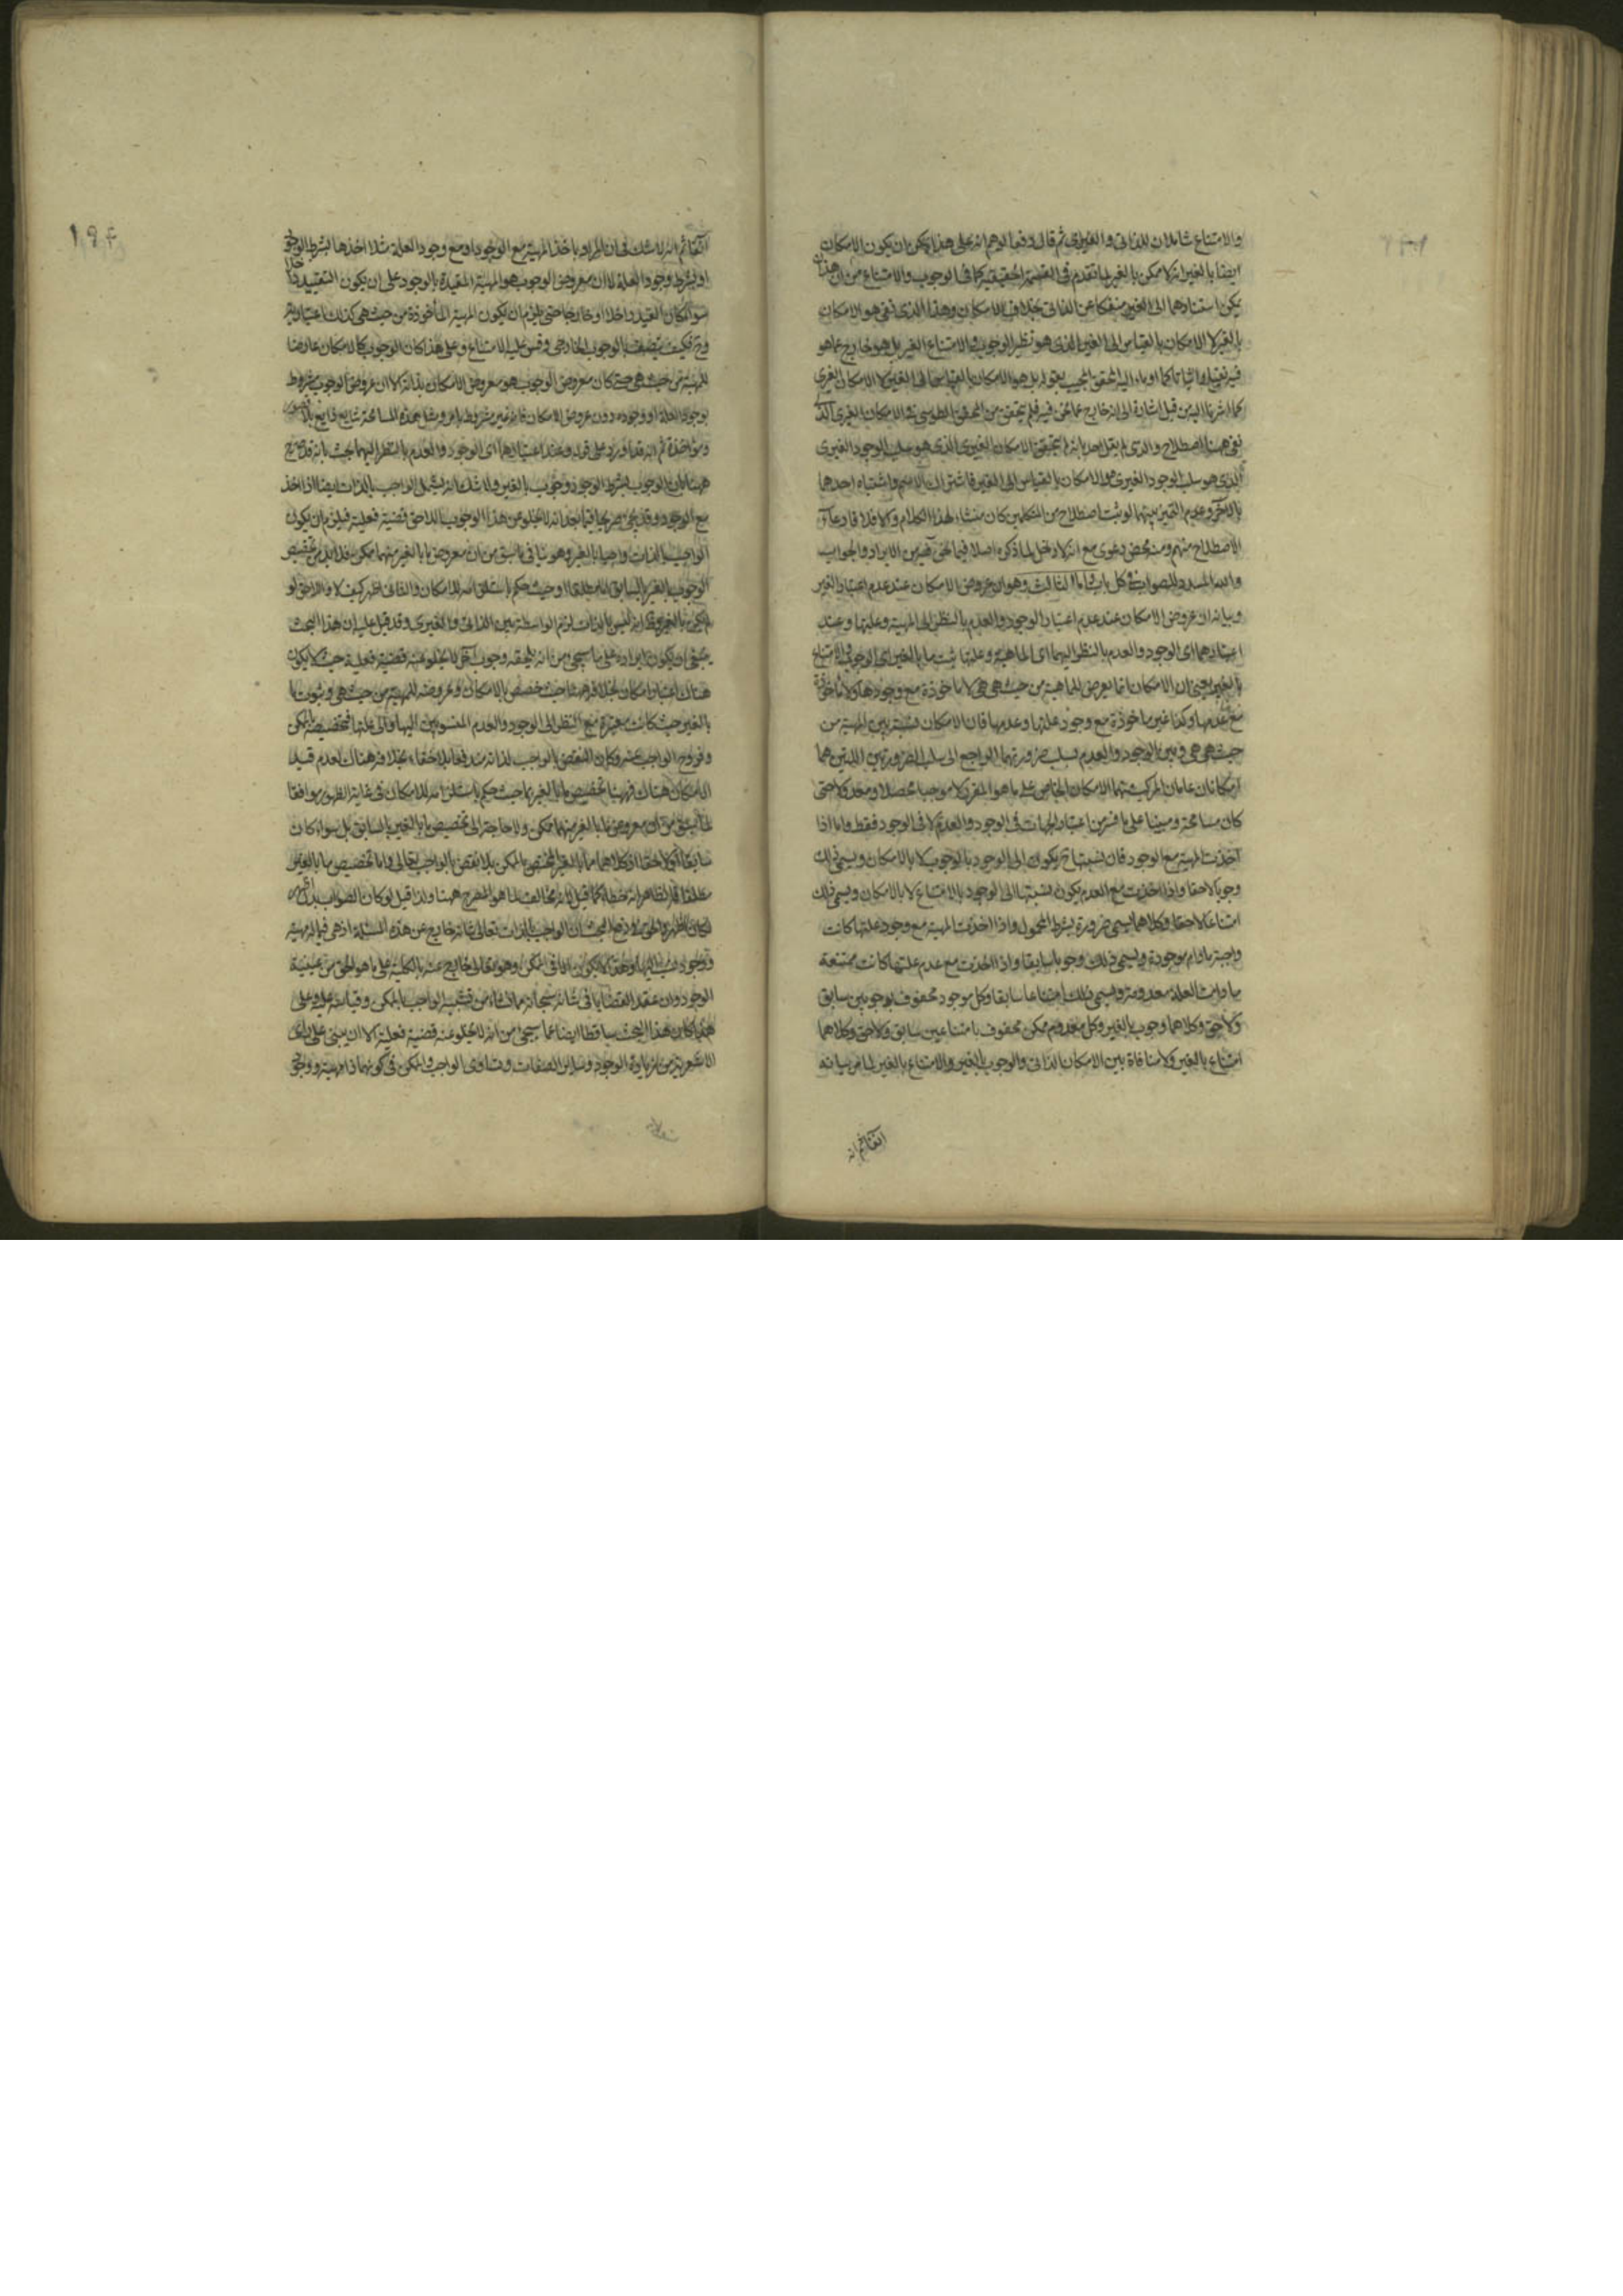 والامتناع شاملان للذاتى والغيرى ثم قال دفعا لوهم انه على هذا يمكن ان يكون الامكان
ايضا بالغير انه لا ممكن بالغير لما تقدم فى القسمة الحقيقية كما فى الوجوب والامتناع من ان هذان
يمكن استنادهما الى الغير منفكا عن الذاتى بخلاف الامكان وهذا الذى نفى هو الامكان
بالغير لا الامكان بالقياس الى الغير الذى هو نظير الوجوب والامتناع الغير بل هو خارج عما هو
فيه نفيا واثباتا كما اومأ اليه المحقق المجيب بقوله بل هو الامكان بالقياس الى الغير لا الامكان الغيرى
كما اشرنا اليه من قبل اشارة الى انه خارج عما نحن فيه فلم يتحقق من المحقق الطوسى نفى الامكان الغيرى الذى
نفى هنا اصطلاح والذى لم يقل احد بانه لم يتحقق الامكان الغيرى الذى هو سلب الوجود الغيرى
الذى هو سلب الوجود الغيرى والامكان بالقياس الى الغير فاشتراك الاسم واشتباه احدهما
بالآخر وعدم التميز بينهما لو ثبت اصطلاح من المتكلمين كان منشاء لهذا الكلام والا فلا فادعاء
الاصطلاح منهم ومنه محض دعوى مع انه لا دخل لما ذكره اصلا فيما نحن فيه من الايراد والجواب
والله المسدد للصواب فى كل باب واما الثالث وهو ان عروض الامكان عند عدم اعتبار الغير
وبيانه ان عروض الامكان عند عدم اعتبار الوجود والعدم بالنظر الى المهية وعليتها وعند
اعتبارهما اى الوجود والعدم بالنظر اليهما اى الماهية وعلتها يثبت ما بالغير اى الوجوب والامتناع
بالغير يعنى ان الامكان انما يعرض للماهية من حيث هى هى لا ماخوذة مع وجودها ولا ماخوذة
مع عدمها وكذا غير ماخوذة مع وجود علتها وعدمها فان الامكان نسبة بين المهية من
حيث هى هى وبين الوجود والعدم بسلب ضرورتهما الراجع الى سلب الضرورتين اللتين هما
امكانان عامان المركب منهما الامكان الخاص على ما هو المقرر لا موجبا محصلا ومعدولا حتى
كان مسامحة ومبينا على ما فسر من اعتبار الجهات فى الوجود والعدم لا فى الوجود فقط واما اذا
اخذت المهية مع الوجود فان نسبتها ح يكون الى الوجود بالوجوب لا بالامكان ويسمى ذلك
وجوبا لاحقا واذا اخذت مع العدم يكون نسبتها الى الوجود بالامتناع لا بالامكان ويسمى ذلك
امتناعا لاحقا وكلاهما يسمى ضرورة بشرط المحمول واذا اخذت المهية مع وجود علتها كانت
واجبة ما دام موجودة ويسمى ذلك وجوبا سابقا واذا اخذت مع عدم علتها كانت ممتنعة
ما دامت العلة معدومة ويسمى ذلك امتناعا سابقا وكل موجود محفوف بوجوبين سابق
ولاحق وكلاهما وجوب بالغير وكل معدوم ممكن محفوف بامتناعين سابق ولاحق وكلاهما
امتناع بالغير ولا منافاة بين الامكان الذاتى والوجوب بالغير والامتناع بالغير لما مر بيانه
آنفا ثم انه
١٩٤
آنفا ثم انه لا شك فى ان المراد باخذ المهية مع الوجود او مع وجود العلة مثلا اخذها بشرط الوجود
او بشرط وجود العلة لا ان معروض الوجوب هو المهية المقيدة بالوجود على ان يكون التقييد داخلا
سواء كان القيد داخلا او خارجا حتى يلزم ان يكون المهية المأخوذة من حيث هى كذلك اعتبارية
وح فكيف يتصف بالوجوب الخارجى وقس عليه الامتناع وعلى هذا كان الوجوب كالامكان عارضا
للمهية من حيث هى حتى كان معروض الوجوب هو معروض الامكان بذاته الا ان عروض الوجوب بشرط
وجود العلة او وجوده دون عروض الامكان فانه غير مشروط بامر ومثل هذه المسامحة شايع ذايع بلا
ومؤاخذة ثم انه قد اورد على قوله وعند اعتبارهما اى الوجود والعدم بالنظر اليهما بحث بانه قد صرح
ههنا بان الوجوب بشرط الوجود وجوب بالغير ولا شك انه يشمل الواجب بالذات ايضا اذا اخذ
مع الوجود وقد يجئ صريحا فيما بعد انه لا يخلو عن هذا الوجوب اللاحق قضية فعلية فيلزم ان يكون
الواجب بالذات واجبا بالغير وهو ينافى ما سبق من ان معروض ما بالغير منهما ممكن فلا بد من تخصيص
الوجوب بالغير بالسابق لا مطلقا او حيث حكم باستلزامه للامكان والثانى اظهر كيف لا والاحق لو
لم يكن بالغير وظ انه ليس بالذات لزم الواسطة بين الذاتى والغيرى وقد قيل عليه ان هذا البحث
ينبغى ان يكون ايراده على ما سيجئ من انه يلحقه وجوب آخر لا يخلو عنه قضية فعلية حيث لا يكون
هناك اعتبار امكان بخلافه ههنا حيث خصص بالامكان وعروضه للمهية من حيث هى وثبوت ما
بالغير حيث كانت معتبرة مع النظر الى الوجود والعدم المنسوبين اليها والى علتها فتخصيصه بالممكن
وخروج الواجب عنه وكان النقض بالواجب لذاته مندفعا بلا خفاء بخلافه هناك لعدم قيد
الامكان هناك فههنا تخصيص ما بالغير بما حيث حكم باستلزامه للامكان فى غاية الظهور موافقا
لما سبق من ان معروض ما بالغير منهما ممكن ولا حاجة الى تخصيص ما بالغير بالسابق بل سواء كان
سابقا او لاحقا اذ كلاهما ما بالغير المختص بالممكن بلا نقض بالواجب تعالى واما تخصيص ما بالغير
مطلقا فالظاهر انه خطاء كما قيل لانه مخالف لما هو المصرح ههنا ولذا قيل لو كان الصواب بدل
لكان اظهر والحق فى دفع البحث ان الواجب بالذات تعالى شانه خارج عن هذه المسئلة اذ هى فيما له مهية
ووجود ينسب اليها وهذا لا يكون الا فى الممكن وهو تعالى خارج عنه بالكلية على ما هو الحق من عينية
الوجود وان عقد القضايا فى شانه سبحانه مما نشاء من تشبيه الواجب بالممكن وقياسه عليه وعلى
هذا كان هذا البحث ساقطا ايضا عما سيجئ من انه لا يخلو عنه قضية فعلية الا ان يبنى على راى
الاشعرية من زيادة الوجود وسائر الصفات وتساوى الواجب والممكن فى كونهما ذا مهية ووجود